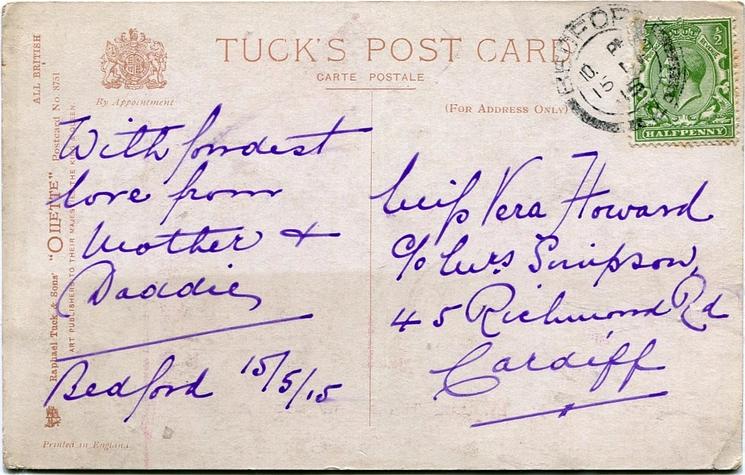 TUCK'S POST CARD
CARTE POSTALE
By Appointment
(FOR ADDRESS ONLY)
ALL BRITISH
Raphael Tuck & Sons' "OILETTE" Postcard No. 8751
ART PUBLISHERS TO THEIR MAJESTIES THE KING & QUEEN
Printed in England
With fondest
love from
Mother &
Daddie
Bedford 15/5/15
Miss Vera Howard
c/o Mrs Simpson,
45 Richmond Rd
Cardiff
BEDFORD
1/2
HALFPENNY